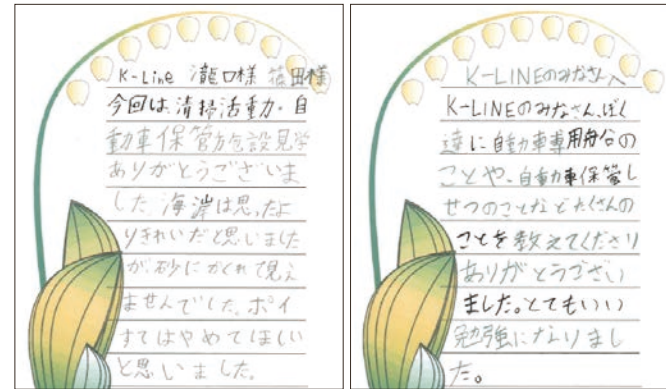 K-Line 瀧口様 篠田様
今回は、清掃活動力・自
動車保管施設見学
ありがとうございま
した。海岸は思ったよ
りきれいだと思いました
が、砂にかくれて見え
ませんでした。ポイ
すてはやめてほしい
と思いました。
K-LINEのみなさんへ
K-LINEのみなさん、ぼく
達に自動車専用船の
ことや、自動車保管し
せつのことなどたくさんの
ことを教えてくださり
ありがとうござい
ました。とてもいい
勉強になりまし
た。